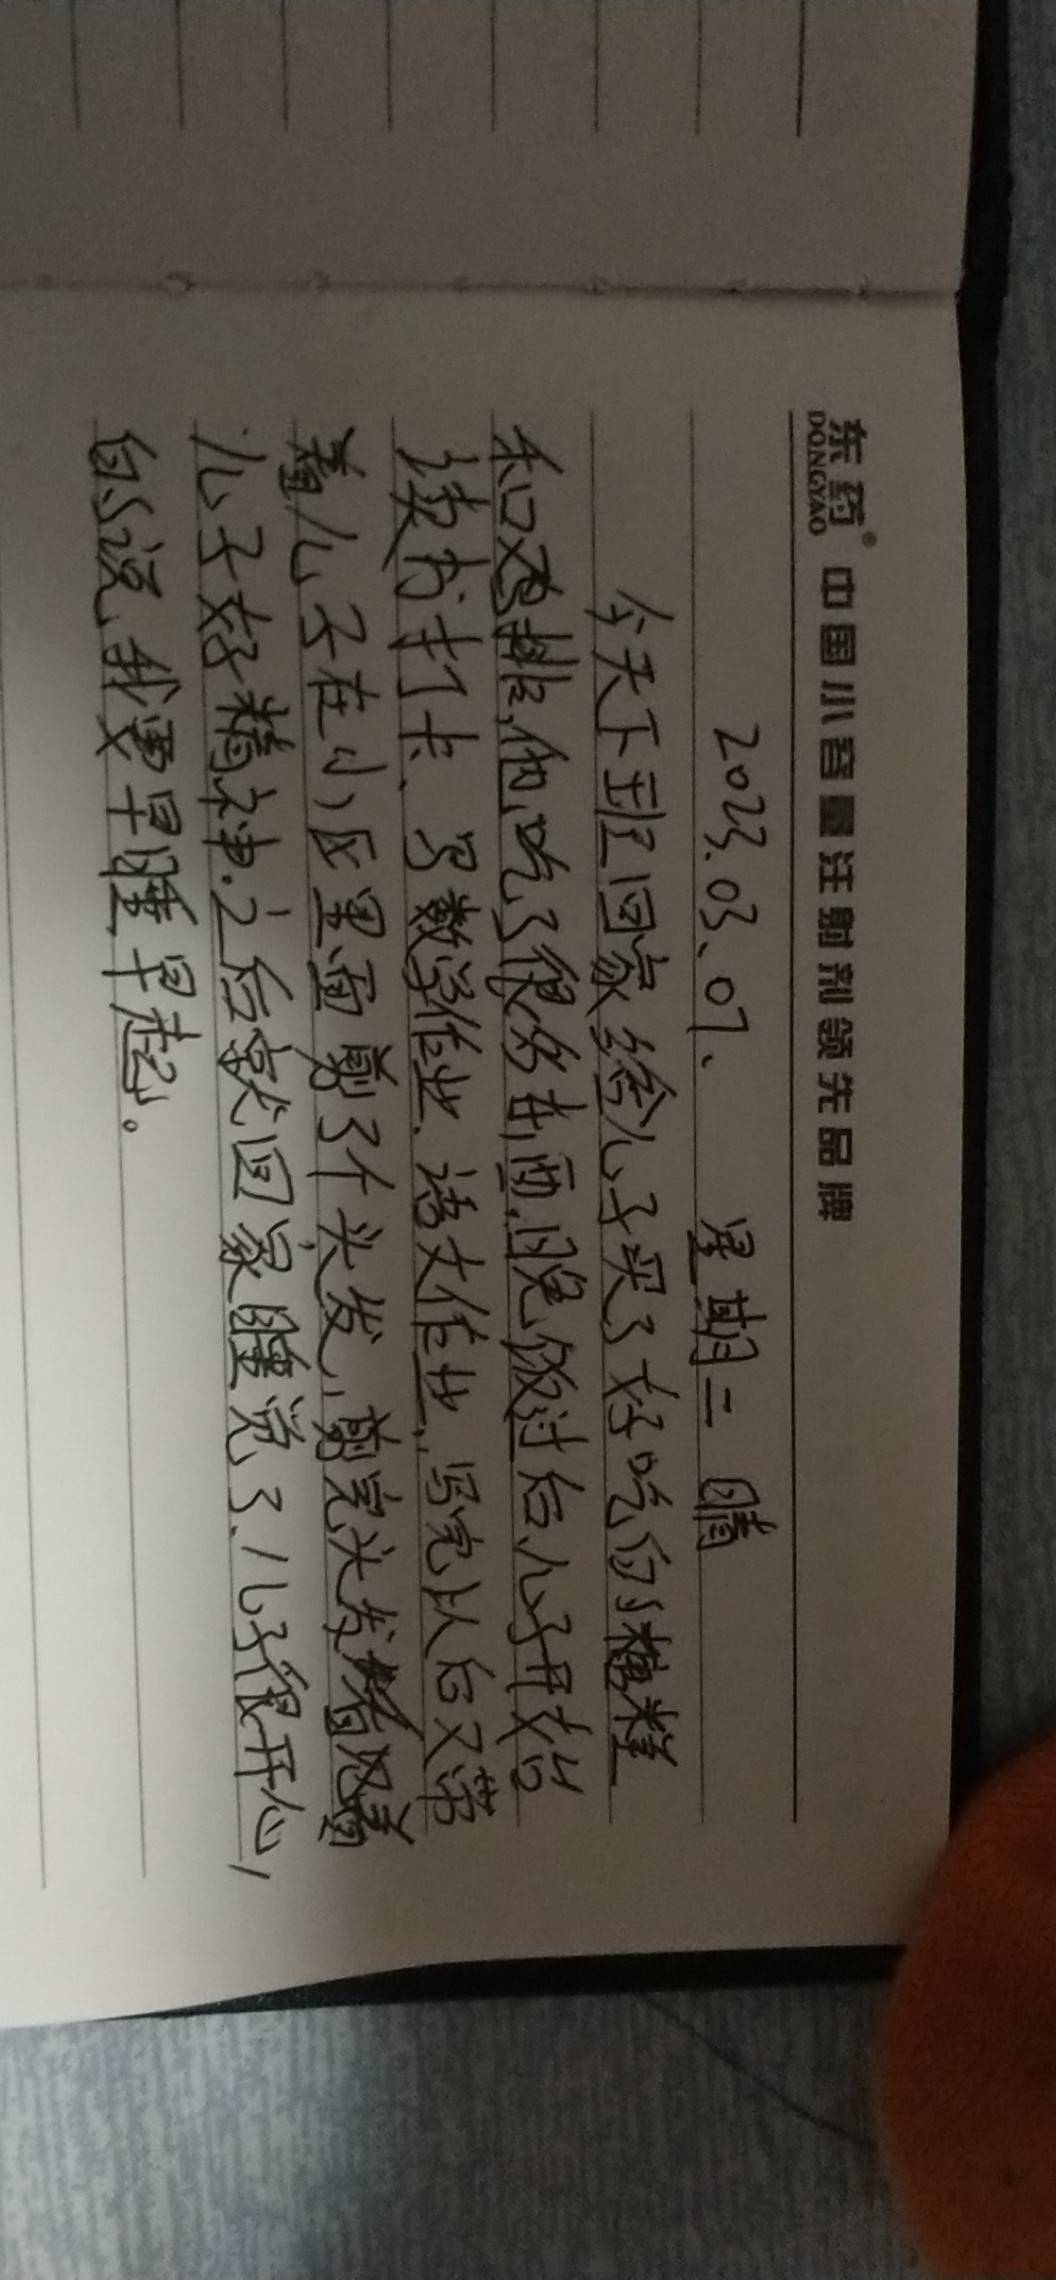 东药®
DONGYAO
中国小容量注射剂领先品牌
2023.03.07、 星期二 晴
今天下班回家给儿子买了好吃的糖粽
和鸡排,他吃了很多东西,晚饭过后儿子开始
读书打卡、写数学作业、语文作业,写完以后又带
着儿子在小区里面剪了个头发,剪完头发看着
儿子好精神.之后就回家睡觉了、儿子很开心,
的说、我要早睡早起。